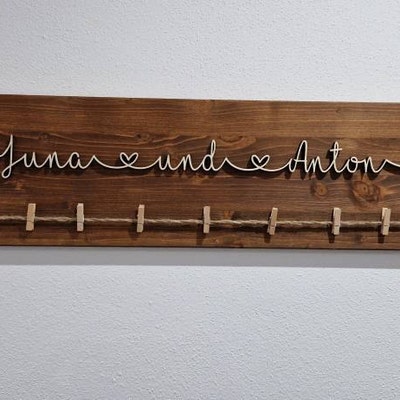 Juna ♡ und ♡ Anton